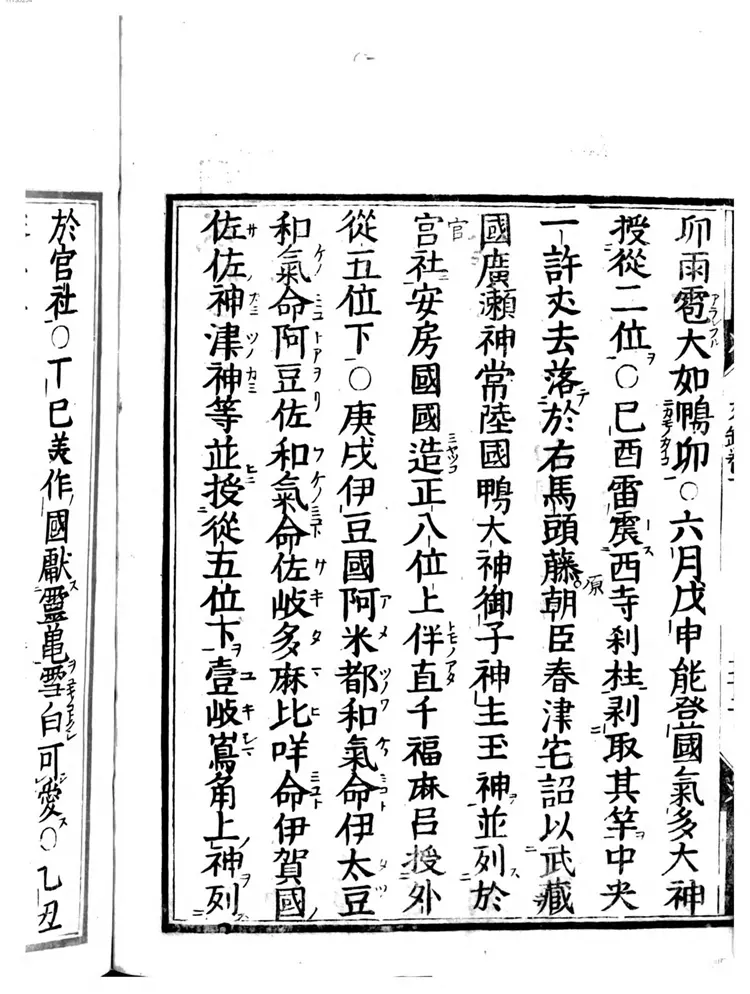 卯雨雹大如鴨卯○六月戊申能登國氣多大神
授從二位○巳酉雷震西寺刹柱剥取其竿中央
一許𠀋去落於右馬頭藤朝臣春津宅詔以武藏
國廣瀬神常陸國鴨大神御子神主玉神並列於
宫社安房國國造正八位上伴直千福麻呂授外
從五位下○庚戌伊豆國阿米都和氣命伊太豆
和氣命阿豆佐和氣命佐岐多麻比咩命伊賀國
佐佐神津神等並授從五位下壹岐嶌角上神列
於官社○丁巳美作國獻靈亀雪白可愛○乙丑